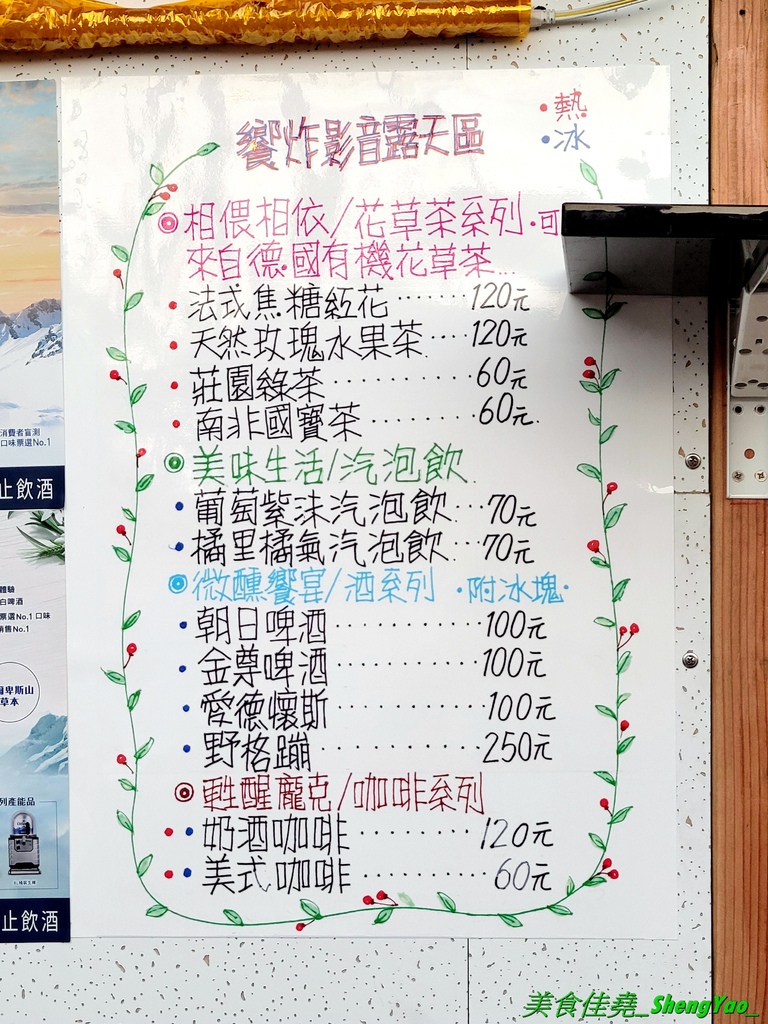 饗炸影音露天區
•熱
•冰
◎相偎相依/花草茶系列•可
來自德國有機花草茶...
•法式焦糖紅花......120元
•天然玫瑰水果茶...120元
•莊園綠茶..........60元
•南非國寶茶........60元
◎美味生活/汽泡飲
•葡萄紫沫汽泡飲...70元
•橘里橘氣汽泡飲...70元
◎微醺饗宴/酒系列 •附冰塊•
•朝日啤酒..........100元
•金尊啤酒..........100元
•愛德懷斯..........100元
•野格蹦..........250元
◎甦醒龐克/咖啡系列
••奶酒咖啡........120元
••美式咖啡.........60元
消費者盲測
口味票選No.1
止飲酒
體驗
白啤酒
票選No.1 口味
銷售No.1
爾卑斯山
草本
列產能品
止飲酒
美食佳堯_ShengYao_